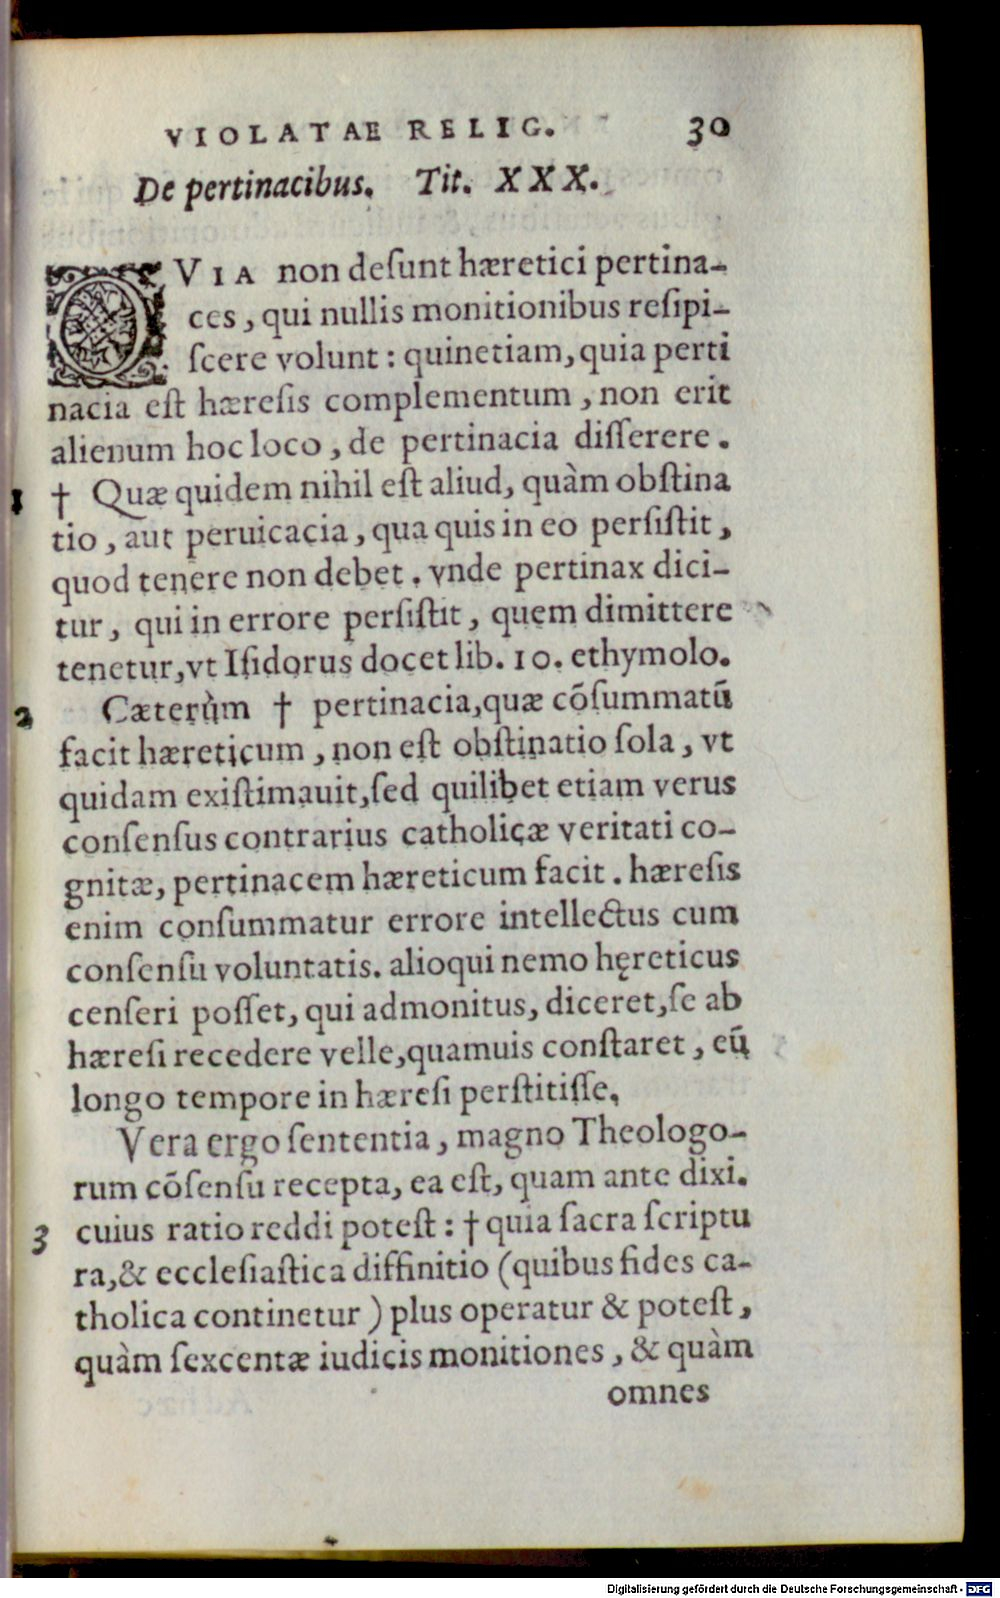 VIOLATAE RELIG. 30
De pertinacibus. Tit. XXX.
QVIA non deſunt hæretici pertina-
ces, qui nullis monitionibus reſipi-
ſcere volunt: quinetiam, quia perti
nacia eſt hæreſis complementum, non erit
alienum hoc loco, de pertinacia diſſerere.
1 † Quæ quidem nihil eſt aliud, quàm obſtina
tio, aut peruicacia, qua quis in eo perſiſtit,
quod tenere non debet. vnde pertinax dici-
tur, qui in errore perſiſtit, quem dimittere
tenetur, vt Iſidorus docet lib. 10. ethymolo.
2 Cæterùm † pertinacia, quæ cõſummatũ
facit hæreticum, non eſt obſtinatio ſola, vt
quidam exiſtimauit, ſed quilibet etiam verus
conſenſus contrarius catholicæ veritati co-
gnitæ, pertinacem hæreticum facit. hæreſis
enim conſummatur errore intellectus cum
conſenſu voluntatis. alioqui nemo hęreticus
cenſeri poſſet, qui admonitus, diceret, ſe ab
hæreſi recedere velle, quamuis conſtaret, eũ
longo tempore in hæreſi perſtitiſſe.
Vera ergo ſententia, magno Theologo-
rum cõſenſu recepta, ea eſt, quam ante dixi.
3 cuius ratio reddi poteſt: † quia ſacra ſcriptu
ra, & eccleſiaſtica diffinitio (quibus fides ca-
tholica continetur) plus operatur & poteſt,
quàm ſexcentæ iudicis monitiones, & quàm
omnes
Digitalisierung gefördert durch die Deutsche Forschungsgemeinschaft - DFG